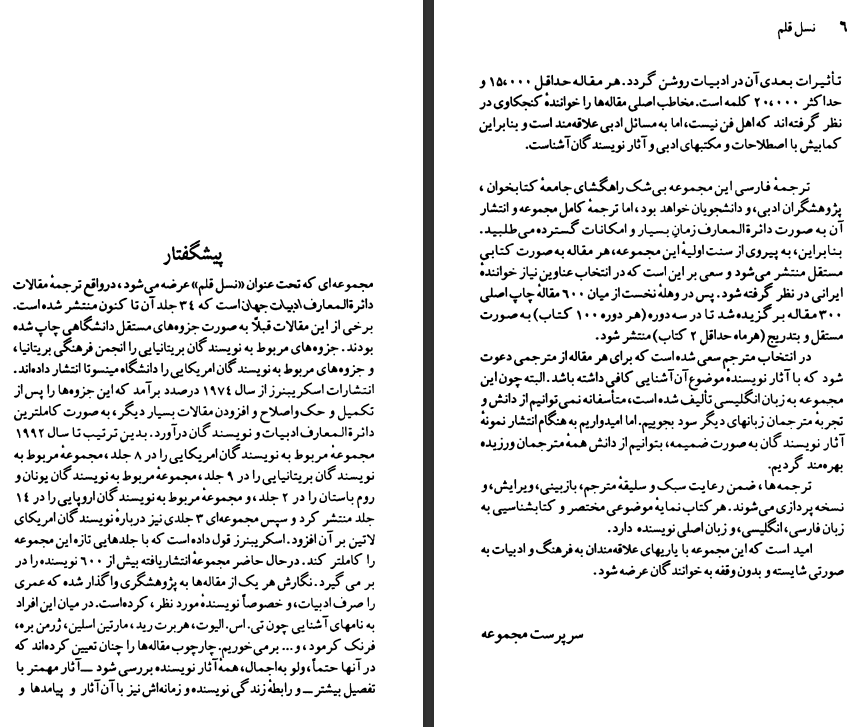 پیشگفتار
مجموعه‌ای که تحت عنوان «نسل قلم» عرضه می‌شود، درواقع ترجمهٔ مقالات
دائرة‌المعارف ادبیات جهان است که ۳۴ جلد آن تا کنون منتشر شده است.
برخی از این مقالات قبلاً به صورت جزوه‌های مستقل دانشگاهی چاپ شده
بودند. جزوه‌های مربوط به نویسندگان بریتانیایی را انجمن فرهنگی بریتانیا،
و جزوه‌های مربوط به نویسندگان امریکایی را دانشگاه مینسوتا انتشار داده‌اند.
انتشارات اسکریبنرز از سال ۱۹۷۴ درصدد برآمد که این جزوه‌ها را پس از
تکمیل و حک‌واصلاح و افزودن مقالات بسیار دیگر، به صورت کاملترین
دائرة‌المعارف ادبیات و نویسندگان درآورد. بدین ترتیب تا سال ۱۹۹۲
مجموعهٔ مربوط به نویسندگان امریکایی را در ۸ جلد، مجموعهٔ مربوط به
نویسندگان بریتانیایی را در ۹ جلد، مجموعهٔ مربوط به نویسندگان یونان و
روم باستان را در ۲ جلد، و مجموعهٔ مربوط به نویسندگان اروپایی را در ۱۴
جلد منتشر کرد و سپس مجموعه‌ای ۳ جلدی نیز دربارهٔ نویسندگان امریکای
لاتین بر آن افزود. اسکریبنرز قول داده است که با جلدهایی تازه این مجموعه
را کاملتر کند. درحال حاضر مجموعهٔ انتشاریافته بیش از ۶۰۰ نویسنده را در
بر می گیرد. نگارش هر یک از مقاله‌ها به پژوهشگری واگذار شده که عمری
را صرف ادبیات، و خصوصاً نویسندهٔ مورد نظر، کرده‌است. در میان این افراد
به نامهای آشنایی چون تی. اس. الیوت، هربرت رید، مارتین اسلین، ژرمن بره،
فرنک کرمود، و... برمی‌خوریم. چارچوب مقاله‌ها را چنان تعیین کرده‌اند که
در آنها حتماً، ولو به‌اجمال، همهٔ آثار نویسنده بررسی شود ــ آثار مهمتر با
تفصیل بیشتر ــ و رابطهٔ زندگی نویسنده و زمانه‌اش نیز با آن آثار و پیامدها و
۶ نسل قلم
تأثیرات بعدی آن در ادبیات روشن گردد. هر مقاله حداقل ۱۵،۰۰۰ و
حداکثر ۲۰،۰۰۰ کلمه است. مخاطب اصلی مقاله‌ها را خوانندهٔ کنجکاوی در
نظر گرفته‌اند که اهل فن نیست، اما به مسائل ادبی علاقه‌مند است و بنابراین
کمابیش با اصطلاحات و مکتبهای ادبی و آثار نویسندگان آشناست.
ترجمهٔ فارسی این مجموعه بی‌شک راهگشای جامعهٔ کتابخوان،
پژوهشگران ادبی، و دانشجویان خواهد بود، اما ترجمهٔ کامل مجموعه و انتشار
آن به صورت دائرة‌المعارف زمانِ بسیار و امکانات گسترده می‌طلبید.
بنابراین، به پیروی از سنت اولیهٔ این مجموعه، هر مقاله به صورت کتابی
مستقل منتشر می‌شود و سعی بر این است که در انتخاب عناوین نیاز خوانندهٔ
ایرانی در نظر گرفته شود. پس در وهلهٔ نخست از میان ۶۰۰ مقالهٔ چاپ اصلی
۳۰۰ مقاله برگزیده شد تا در سه دوره (هر دوره ۱۰۰ کتاب) به صورت
مستقل و بتدریج (هرماه حداقل ۲ کتاب) منتشر شود.
در انتخاب مترجم سعی شده است که برای هر مقاله از مترجمی دعوت
شود که با آثار نویسندهٔ موضوع آن آشنایی کافی داشته باشد. البته چون این
مجموعه به زبان انگلیسی تألیف شده است، متأسفانه نمی‌توانیم از دانش و
تجربهٔ مترجمان زبانهای دیگر سود بجوییم. اما امیدواریم به هنگام انتشار نمونهٔ
آثار نویسندگان به صورت ضمیمه، بتوانیم از دانش همهٔ مترجمان ورزیده
بهره‌مند گردیم.
ترجمه‌ها، ضمن رعایت سبک و سلیقهٔ مترجم، بازبینی، ویرایش، و
نسخه پردازی می‌شوند. هر کتاب نمایهٔ موضوعی مختصر و کتابشناسیی به
زبان فارسی، انگلیسی، و زبان اصلی نویسنده دارد.
امید است که این مجموعه با یاریهای علاقه‌مندان به فرهنگ و ادبیات به
صورتی شایسته و بدون وقفه به خوانندگان عرضه شود.
سرپرست مجموعه